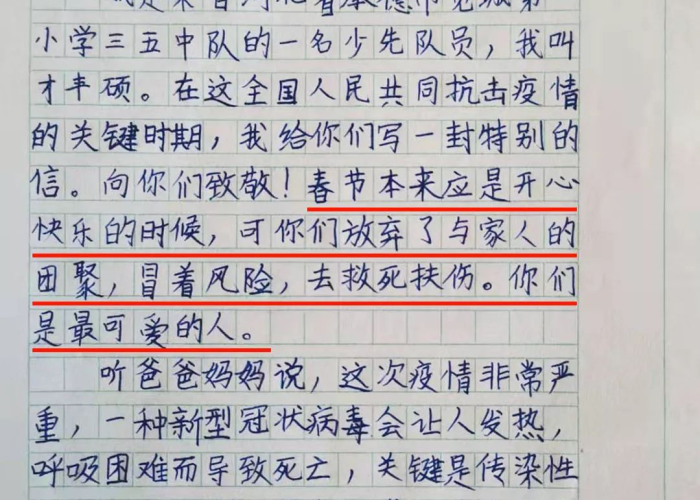 小学三五中队的一名少先队员，我叫
才丰硕。在这全国人民共同抗击疫情
的关键时期，我给你们写一封特别的
信。向你们致敬！春节本来应是开心
快乐的时候，可你们放弃了与家人的
团聚，冒着风险，去救死扶伤。你们
是最可爱的人。
听爸爸妈妈说，这次疫情非常严
重，一种新型冠状病毒会让人发热，
呼吸困难而导致死亡，关键是传染性